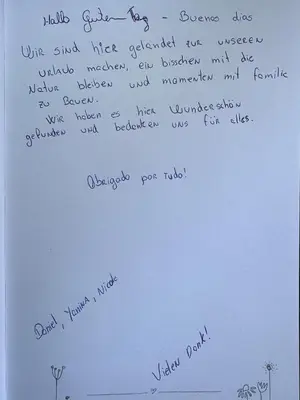 Hallo Guten Tag - Buenos dias
Wir sind hier gelandet zur unseren
urlaub machen, ein bisschen mit die
Natur bleiben und momenten mit familie
zu Bauen.
Wir haben es hier Wunderschön
gefunden und bedanken uns für alles.
Obrigado por tudo!
Daniel, Yanika, Nicole
Vielen Dank!